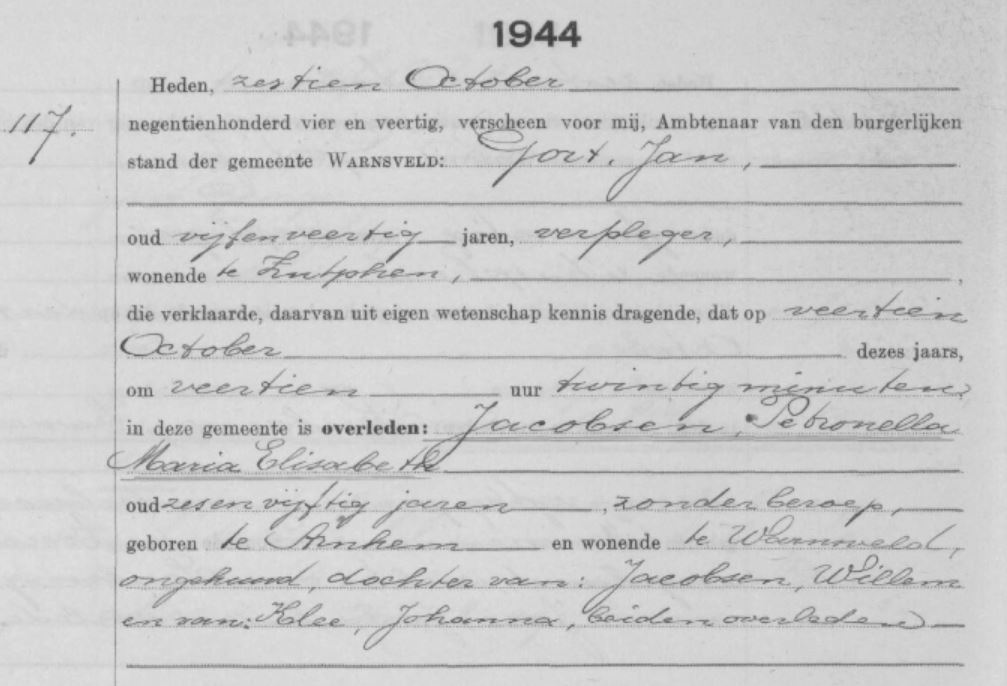 1944
Heden, zestien October
117.
negentienhonderd vier en veertig, verscheen voor mij, Ambtenaar van den burgerlijken
stand der gemeente WARNSVELD: Gort, Jan,
oud vijfenveertig jaren, verpleger,
wonende te Zutphen, ,
die verklaarde, daarvan uit eigen wetenschap kennis dragende, dat op veertien
October dezes jaars,
om veertien uur twintig minuten
in deze gemeente is overleden: Jacobsen, Petronella
Maria Elisabeth
oud zesenvijftig jaren, zonder beroep,
geboren te Arnhem en wonende te Warnsveld,
ongehuwd, dochter van: Jacobsen, Willem
en van: Klee, Johanna, beiden overleden